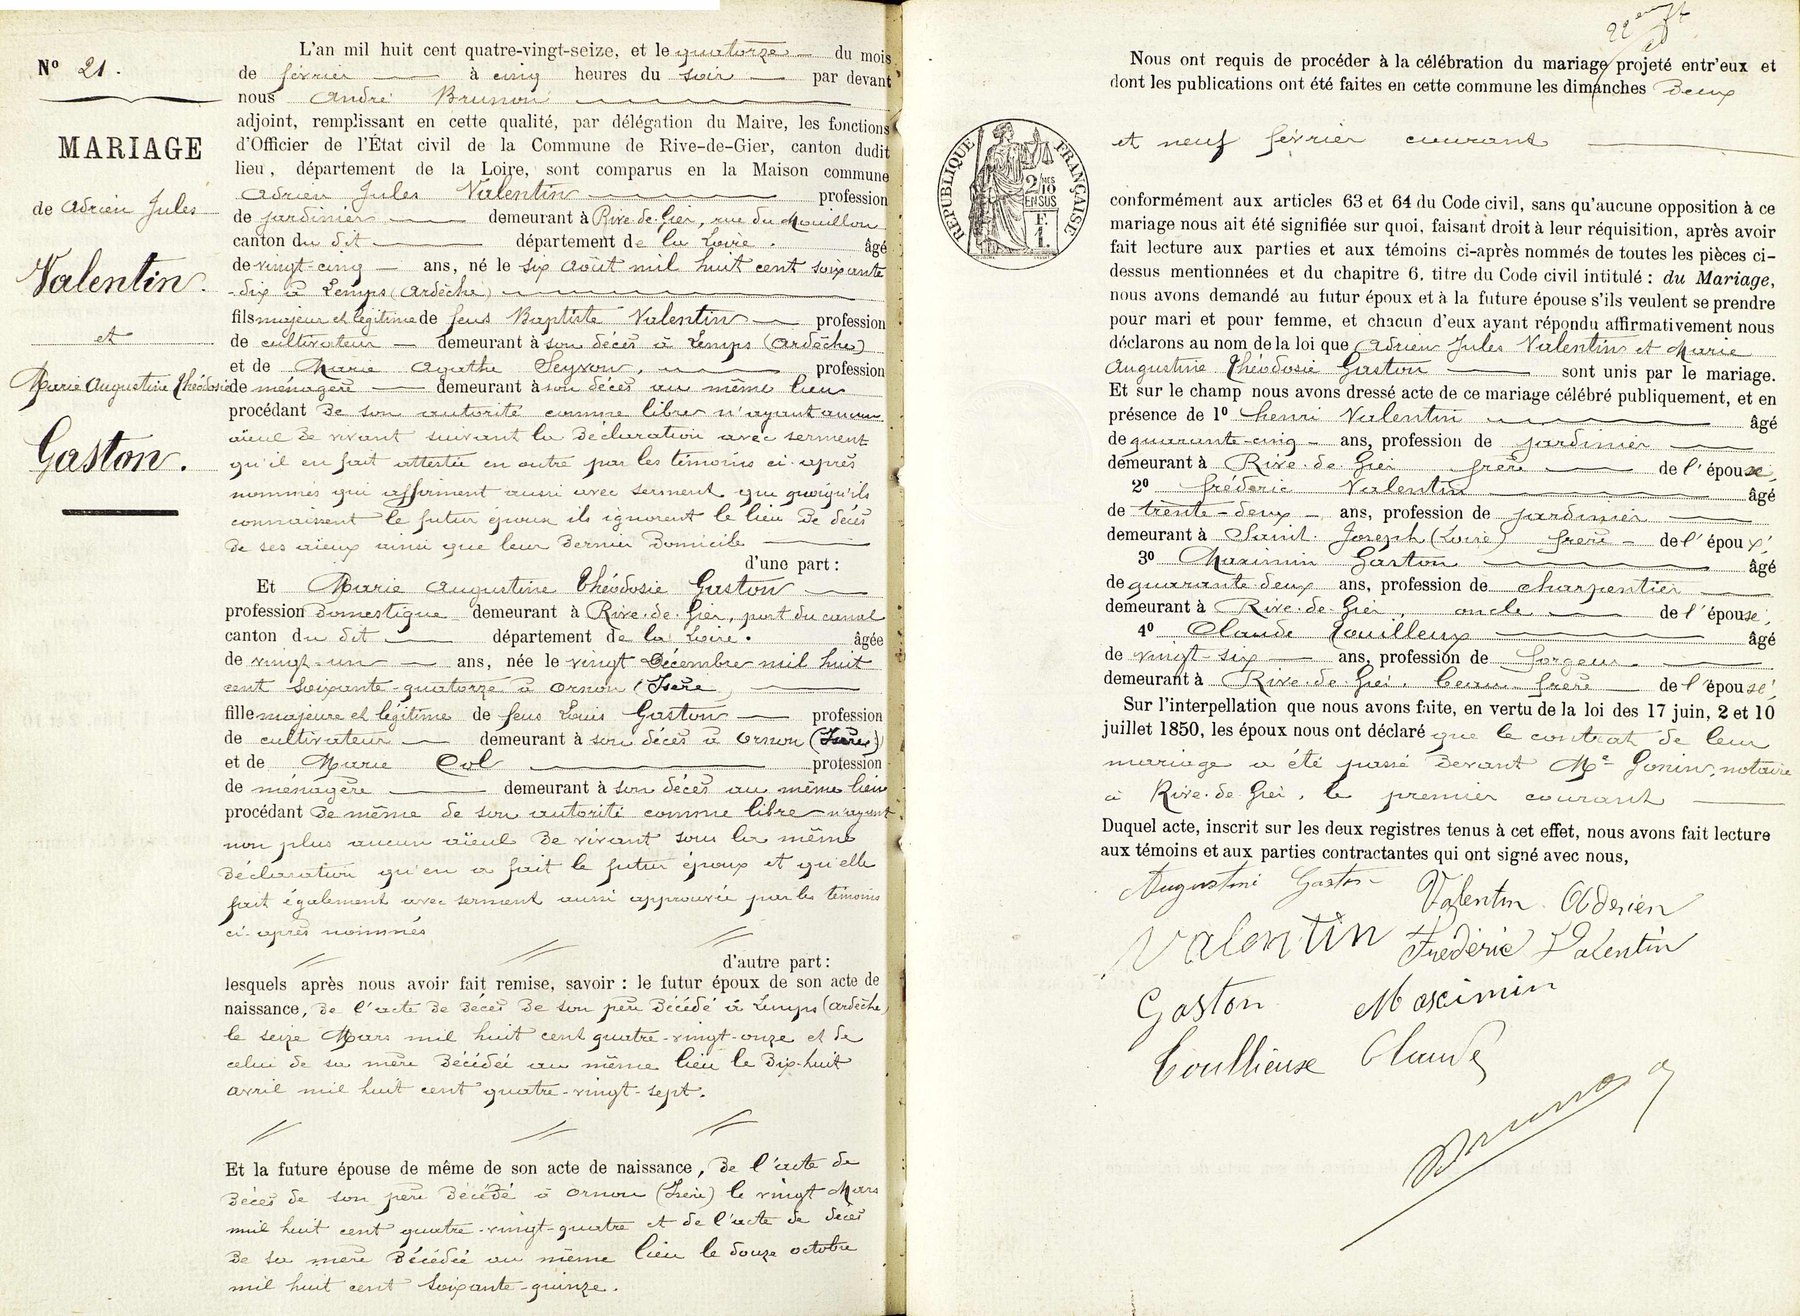 N° 21.
MARIAGE
de Adrien Jules
Valentin.
et
Marie Augustine Théodosie
Gaston.
L'an mil huit cent quatre-vingt-seize, et le quatorze du mois
de février à cinq heures du soir par devant
nous André Brunon
adjoint, remplissant en cette qualité, par délégation du Maire, les fonctions
d'Officier de l'État civil de la Commune de Rive-de-Gier, canton dudit
lieu, département de la Loire, sont comparus en la Maison commune
Adrien Jules Valentin profession
de jardinier demeurant à Rive-de-Gier, rue du Mouillon
canton du dit département de la Loire. âgé
de vingt-cinq ans, né le six Août mil huit cent soixante
-dix à Lemps (Ardèche)
fils majeur et légitime de feus Baptiste Valentin profession
de cultivateur demeurant à son décès à Lemps (Ardèche)
et de Marie Agathe Seyvon, profession
de ménagère demeurant à son décès au même lieu
procédant de son autorité comme libre n'ayant aucun
aïeul de vivant suivant la déclaration avec serment
qu'il en fait attestée en outre par les témoins ci-après
nommés qui affirment aussi avec serment que quoiqu'ils
connaissent le futur époux ils ignorent le lieu de décès
de ses aïeux ainsi que leur dernier domicile
d'une part :
Et Marie Augustine Théodosie Gaston
profession domestique demeurant à Rive-de-Gier, port du canal
canton du dit département de la Loire. âgée
de vingt-un ans, née le vingt Décembre mil huit
cent soixante-quatorze à Ornon (Isère)
fille majeure et légitime de feus Louis Gaston profession
de cultivateur demeurant à son décès à Ornon (Isère)
et de Marie Col profession
de ménagère demeurant à son décès au même lieu
procédant de même de son autorité comme libre n'ayant
non plus aucun aïeul de vivant sous la même
déclaration qu'en a fait le futur époux et qu'elle
fait également avec serment aussi approuvée par les témoins
ci-après nommés
d'autre part :
lesquels après nous avoir fait remise, savoir : le futur époux de son acte de
naissance, de l'acte de décès de son père décédé à Lemps (Ardèche)
le seize Mars mil huit cent quatre-vingt-onze et de
celui de sa mère décédée au même lieu le dix-huit
avril mil huit cent quatre-vingt-sept.
Et la future épouse de même de son acte de naissance, de l'acte de
décès de son père décédé à Ornon (Isère) le vingt Mars
mil huit cent quatre-vingt-quatre et de l'acte de décès
de sa mère décédée au même lieu le douze octobre
mil huit cent soixante-quinze.
Nous ont requis de procéder à la célébration du mariage projeté entr'eux et
dont les publications ont été faites en cette commune les dimanches deux
et neuf février courant
RÉPUBLIQUE FRANÇAISE
2/10 MES
EN SUS
F.
1.
conformément aux articles 63 et 64 du Code civil, sans qu'aucune opposition à ce
mariage nous ait été signifiée sur quoi, faisant droit à leur réquisition, après avoir
fait lecture aux parties et aux témoins ci-après nommés de toutes les pièces ci-
dessus mentionnées et du chapitre 6, titre du Code civil intitulé : du Mariage,
nous avons demandé au futur époux et à la future épouse s'ils veulent se prendre
pour mari et pour femme, et chacun d'eux ayant répondu affirmativement nous
déclarons au nom de la loi que Adrien Jules Valentin et Marie
Augustine Théodosie Gaston sont unis par le mariage.
Et sur le champ nous avons dressé acte de ce mariage célébré publiquement, et en
présence de 1° Henri Valentin âgé
de quarante-cinq ans, profession de jardinier
demeurant à Rive-de-Gier frère de l'épouse
2° frédéric Valentin âgé
de trente-deux ans, profession de jardinier
demeurant à Saint-Joseph (Loire) frère de l'époux
3° Maximin Gaston âgé
de quarante-deux ans, profession de charpentier
demeurant à Rive-de-Gier, oncle de l'épouse
4° Claude Touilleux âgé
de vingt-six ans, profession de forgeur
demeurant à Rive-de-Gier, beau frère de l'épouse
Sur l'interpellation que nous avons faite, en vertu de la loi des 17 juin, 2 et 10
juillet 1850, les époux nous ont déclaré que le contrat de leur
mariage a été passé devant Me Gonin, notaire
à Rive-de-Gier, le premier courant
Duquel acte, inscrit sur les deux registres tenus à cet effet, nous avons fait lecture
aux témoins et aux parties contractantes qui ont signé avec nous,
Augustine Gaston Valentin Adrien
Valentin Frédéric Valentin
Gaston Maximin
Toullieux Claude
Brunon